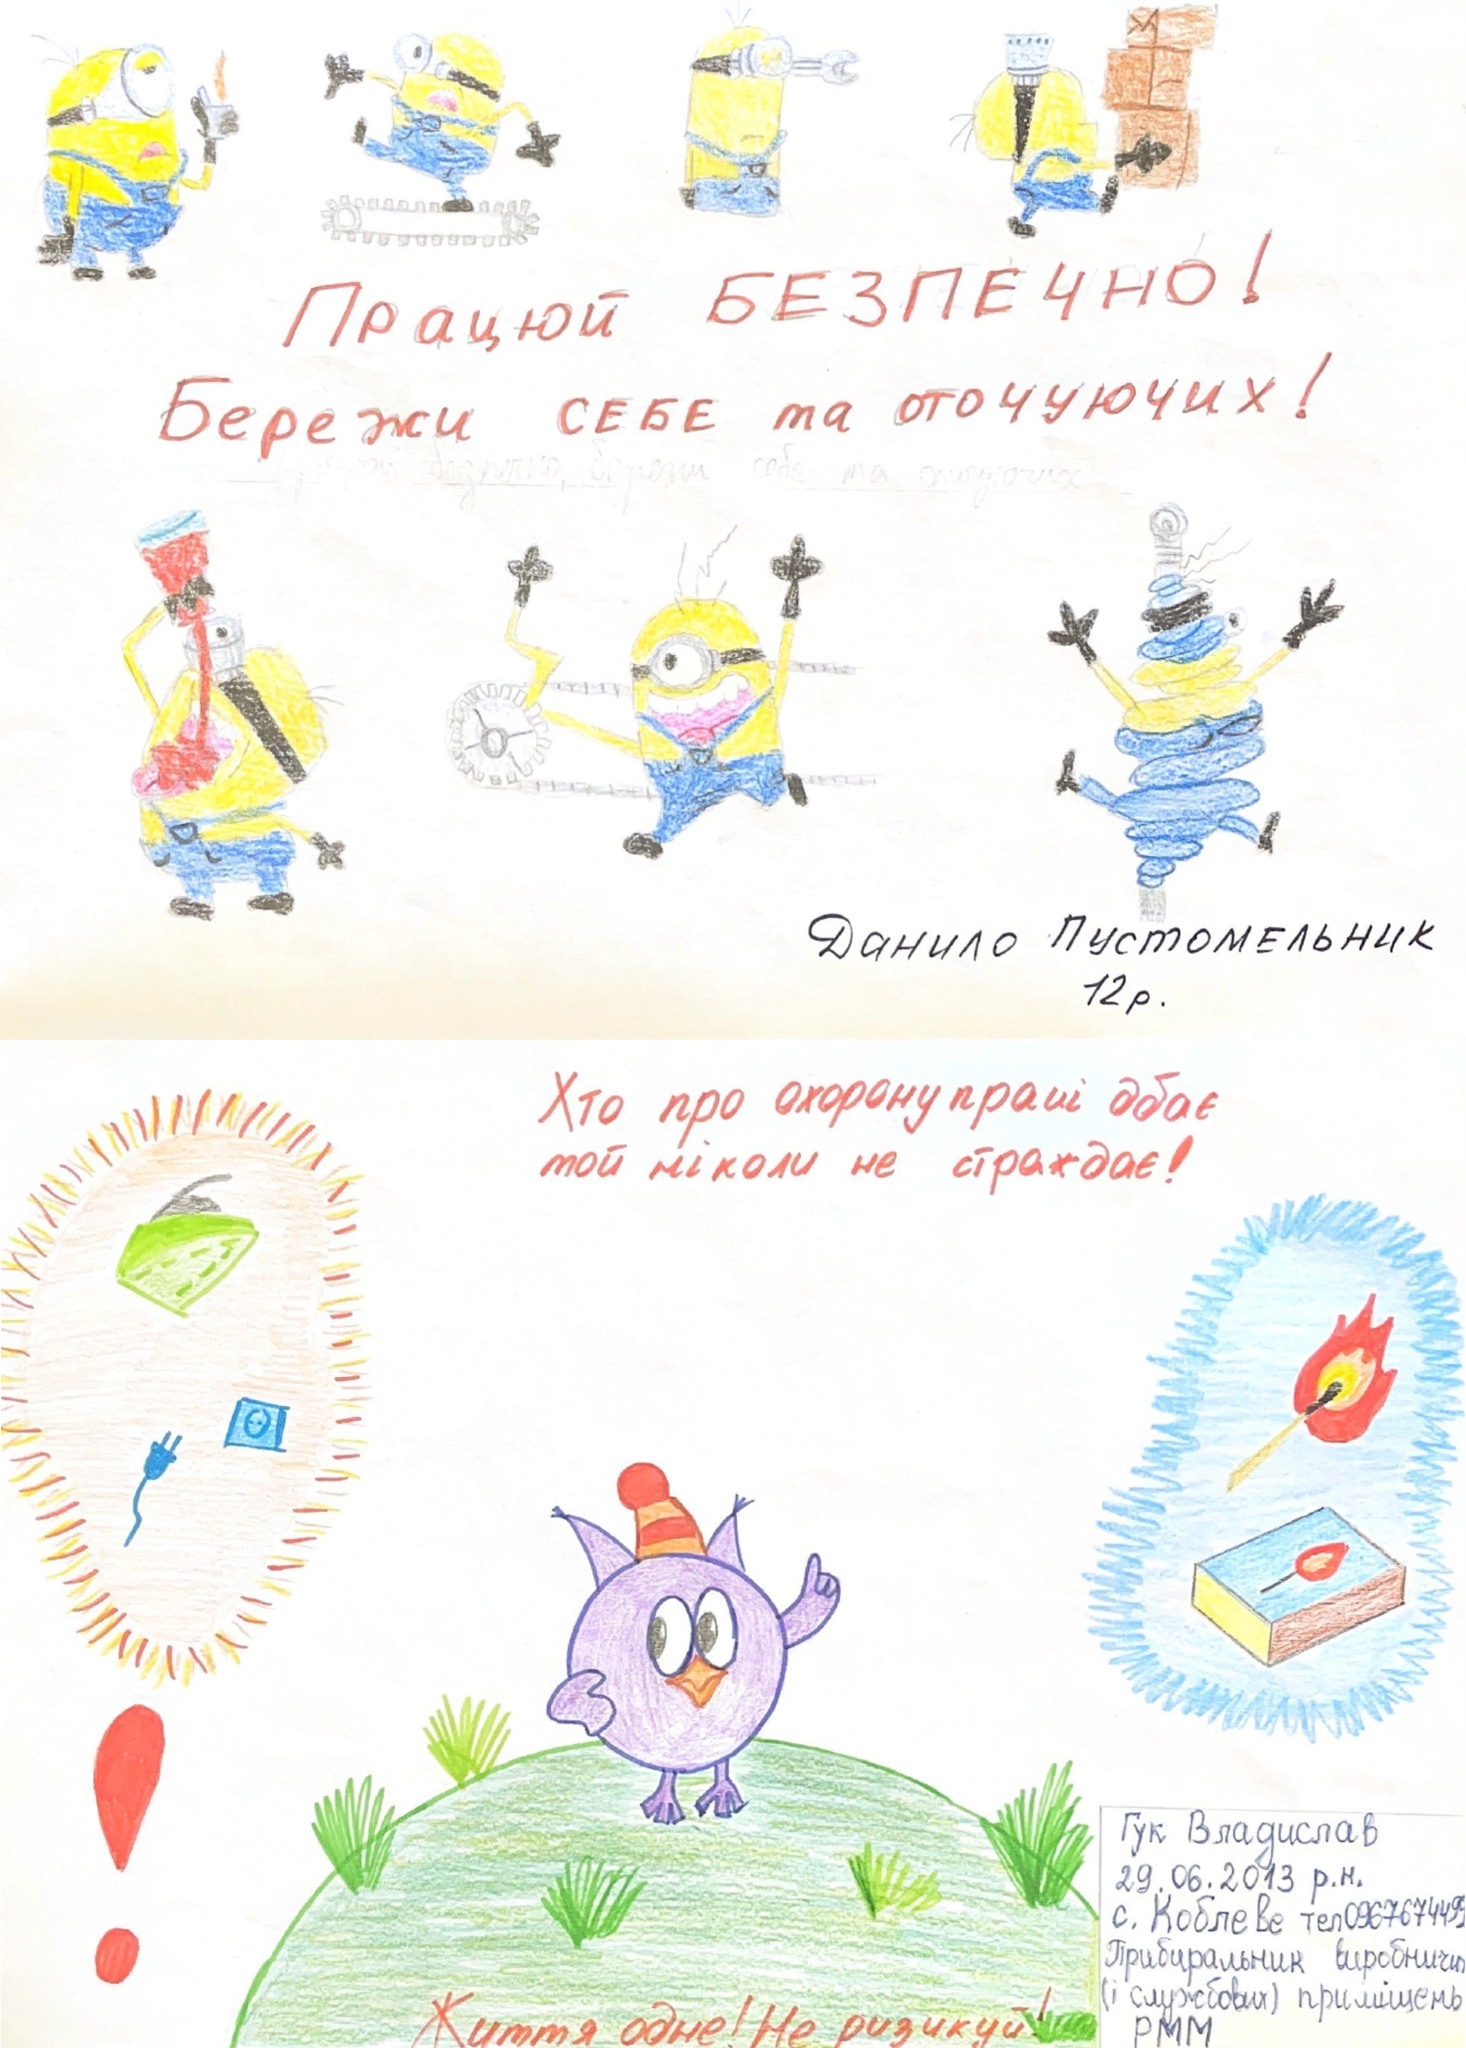 Працюй БЕЗПЕЧНО!
Бережи СЕБЕ та оточуючих!
безпечно, бережи себе та оточуючих
Данило Пустомельник
12р.
Хто про охорону праці дбає
той ніколи не страждає!
Гук Владислав
29.06.2013 р.н.
с. Коблеве тел0967674495
Прибиральник виробничих
(і службових) приміщень
РММ
Життя одне! Не ризикуй!